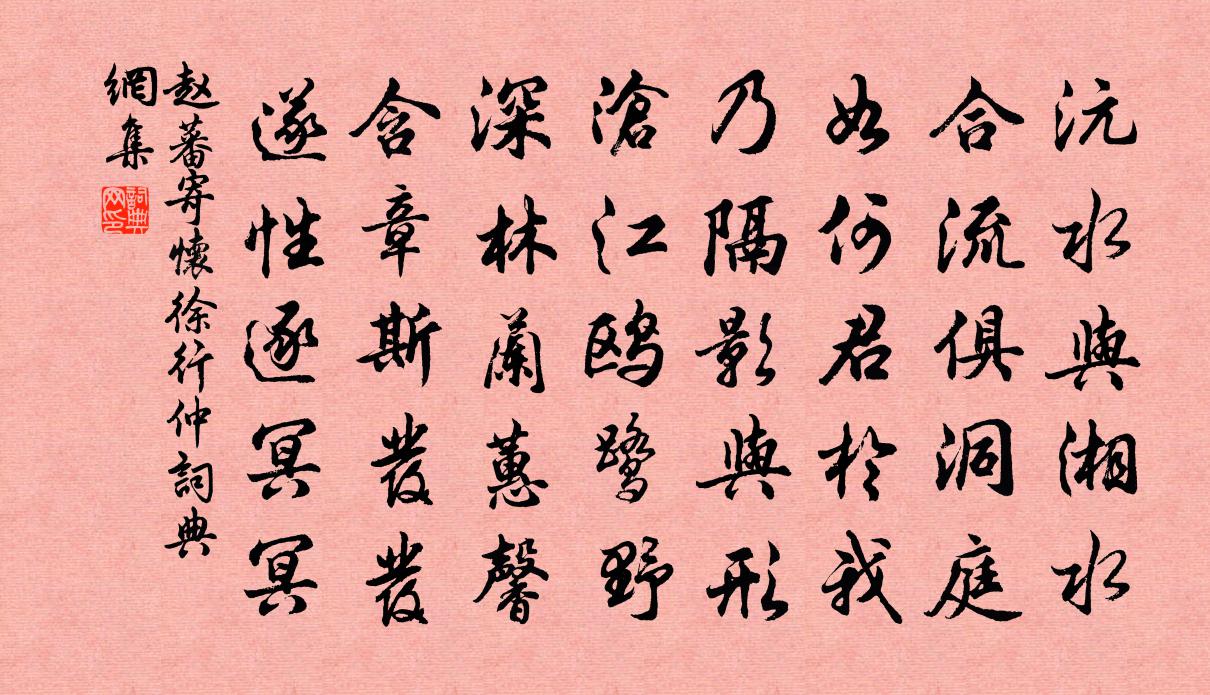 沅水與湘水
合流俱洞庭
如何君於我
乃隔影與形
滄江鷗鷺野
深林蘭蕙馨
含章斯發發
遂性逐冥冥
趙蕃寄懷徐行仲詞典
網集
詞典網印